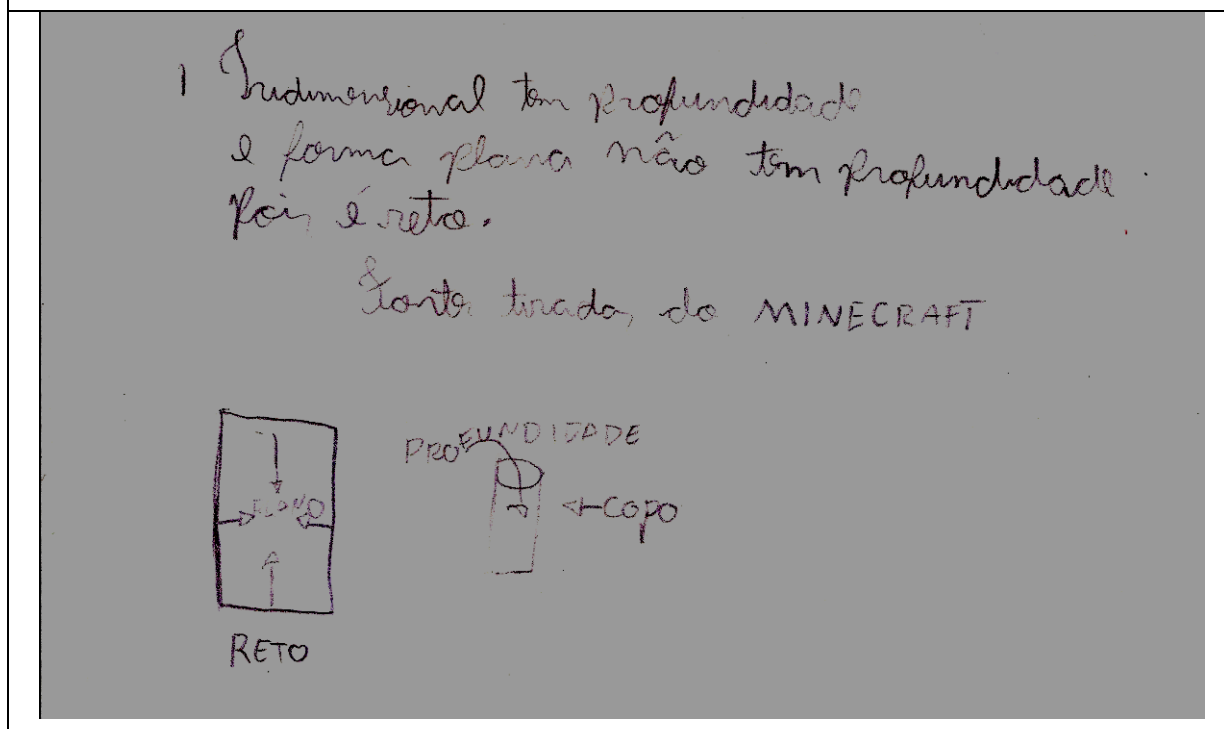 1 Tridimensional tem profundidade
e forma plana não tem profundidade
pois é reto.
Fonte tirada do MINECRAFT
PROFUNDIDADE
PLANO
COPO
RETO